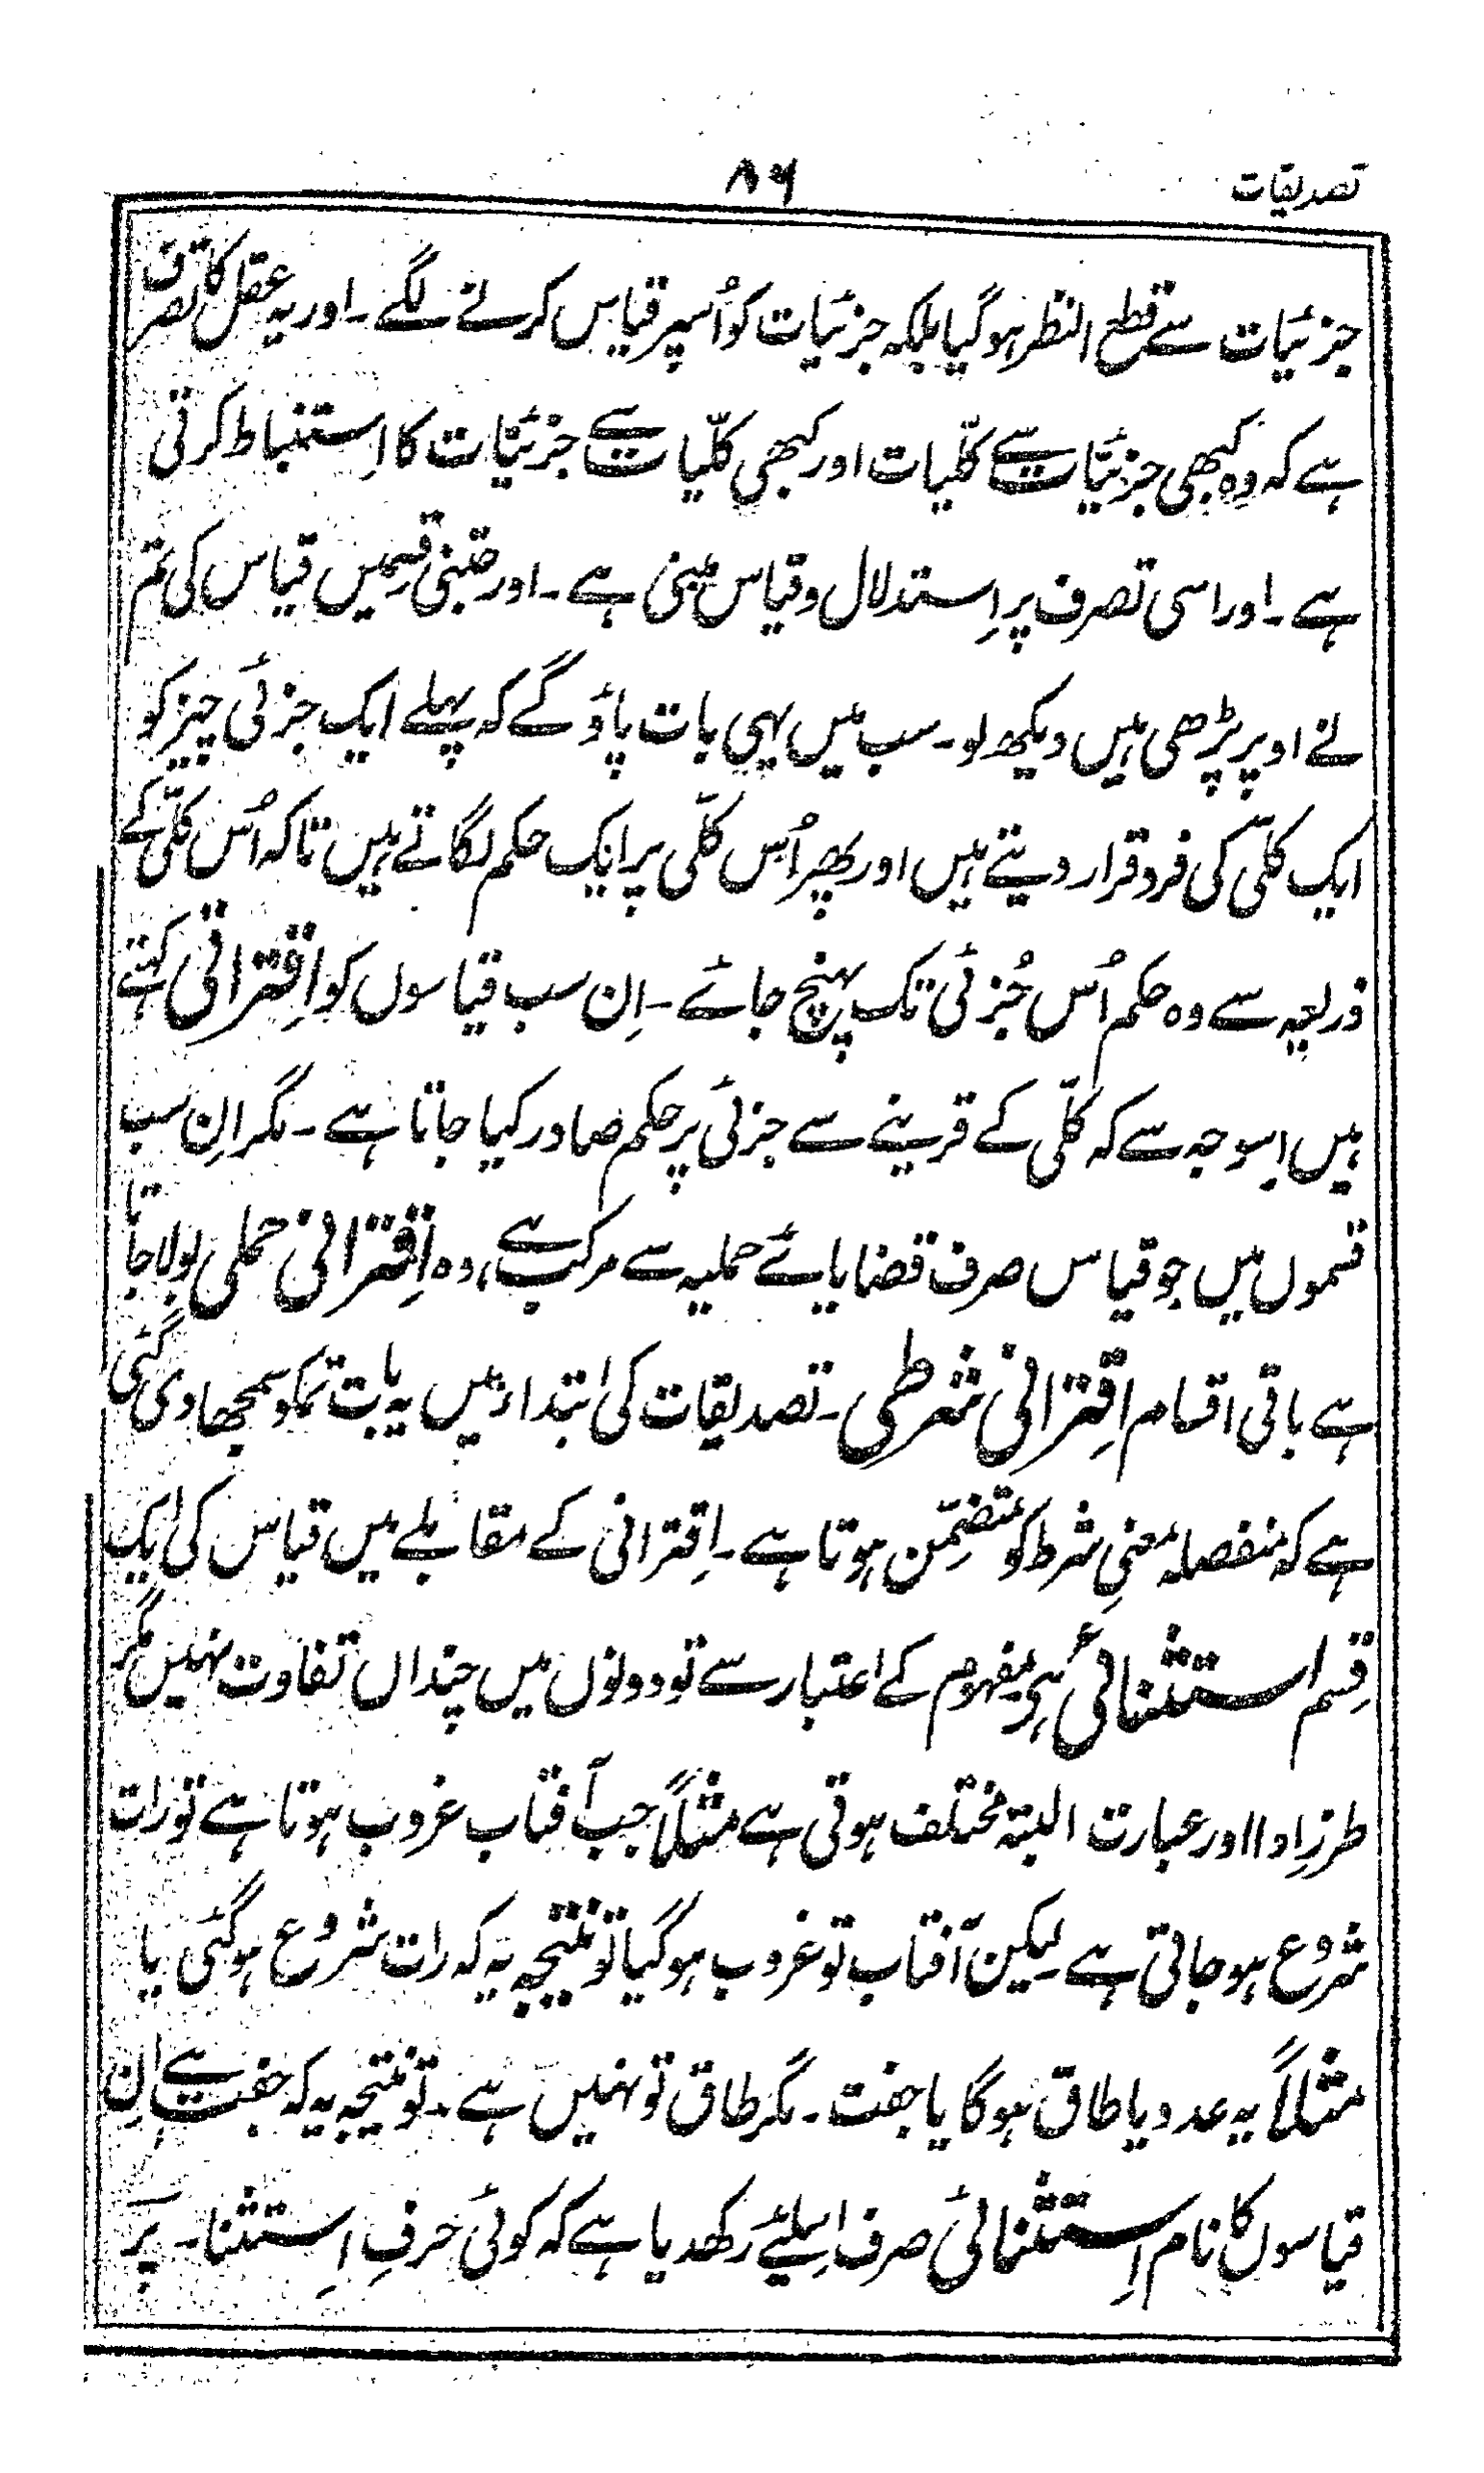 تصدیقات ۸۶
جزئیات سے قطع النظر ہوگیا بلکہ جزئیات کو اُسپر قیاس کرنے لگے ۔ اور یہ عقل کا تصرف
ہے کہ وہ کبھی جزئیّات سے کلّیات اور کبھی کلّیات سے جزئیّات کا اِستنباط کرتی
ہے ۔ اور اسی تصرف پر اِستدلال و قیاس مبنی ہے ۔ اور جتنی قسمیں قیاس کی تم
نے اوپر پڑھی ہیں دیکھ لو ۔ سب میں یہی بات پاؤ گے کہ پہلے ایک جزئی چیز کو
ایک کلّی کی فرد قرار دیتے ہیں اور پھر اُس کلّی پر ایک حکم لگاتے ہیں تاکہ اُس کلّی کے
ذریعہ سے وہ حکم اُس جُزئی تک پہنچ جائے ۔ اِن سب قیاسوں کو اِقترانی کہتے
ہیں اِسوجہ سے کہ کلّی کے قرینے سے جزئی پر حکم صادر کیا جاتا ہے ۔ مگر اِن سب
قسموں میں جو قیاس صرف قضایائے حملیہ سے مرکب ہے، وہ اِقترانی حملی بولا جاتا
ہے باقی اقسام اِقترانی شرطی ۔ تصدیقات کی ابتداء میں یہ بات تمکو سمجھا دی گئی
ہے کہ منفصلہ معنیِ شرط کو متضمّن ہوتا ہے ۔ اِقترانی کے مقابلے میں قیاس کی ایک
قِسم استثنائی ہی مفہوم کے اعتبار سے تو دونوں میں چنداں تفاوت نہیں مگر
طرزِ ادا اور عبارت البتہ مختلف ہوتی ہے مثلاً جب آفتاب غروب ہوتا ہے تو رات
شروع ہو جاتی ہے لیکن آفتاب تو غروب ہوگیا تو نتیجہ یہ کہ رات شروع ہوگئی یا
مثلاً یہ عدد یا طاق ہوگا یا جفت ۔ مگر طاق تو نہیں ہے ۔ تو نتیجہ یہ کہ جفت ہے اِن
قیاسوں کا نام اِستثنائی صرف اِسلئے رکھدیا ہے کہ کوئی حرفِ اِستثنا ۔ پر